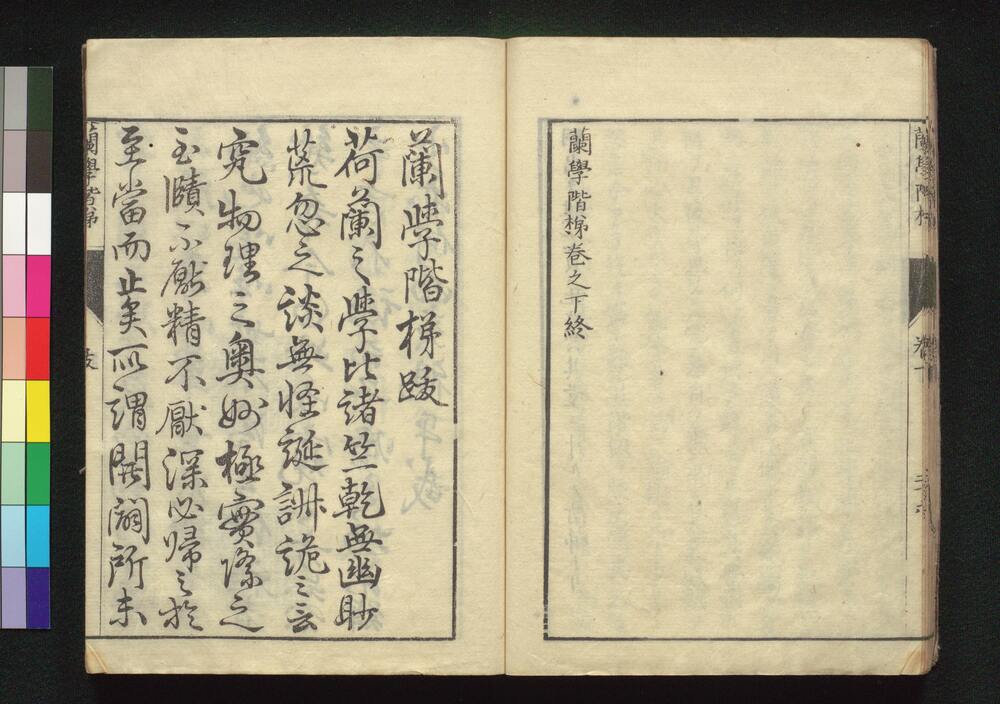 蘭學階梯
蘭學階梯卷之下終
蘭學階梯跋
荷蘭之學比諸竺乾無幽眇
荒忽之談無怪誕訹詭之言
究物理之奧妙極實際之
至賾不厭精不厭深必歸之於
至當而止矣所謂開闢所未
蘭學階梯
跋